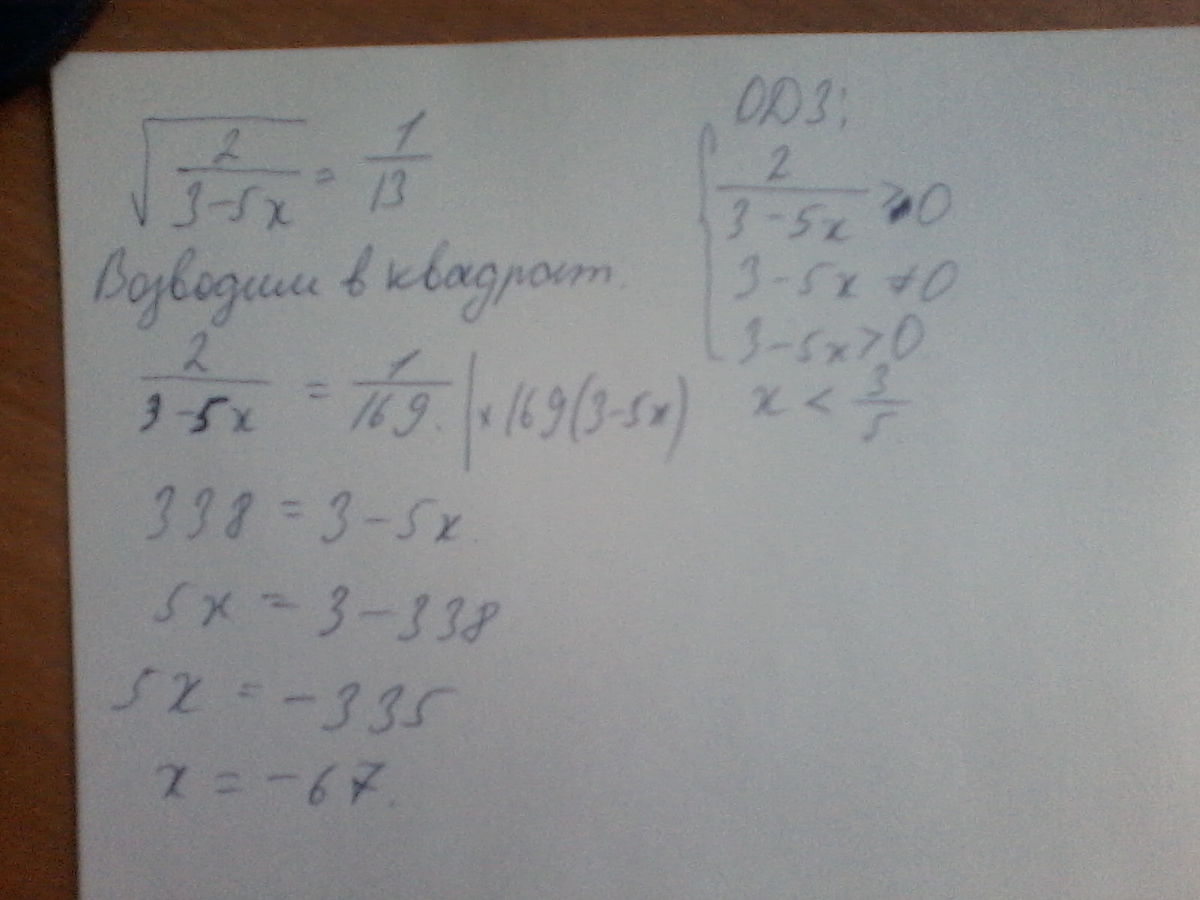 √(2/(3-5x)) = 1/13
Возводим в квадрат.
2/(3-5x) = 1/169. | × 169(3-5x)
338 = 3-5x.
5x = 3-338
5x = -335
x = -67.
ОДЗ:
2/(3-5x) ≥ 0
3-5x ≠ 0
3-5x > 0
x < 3/5